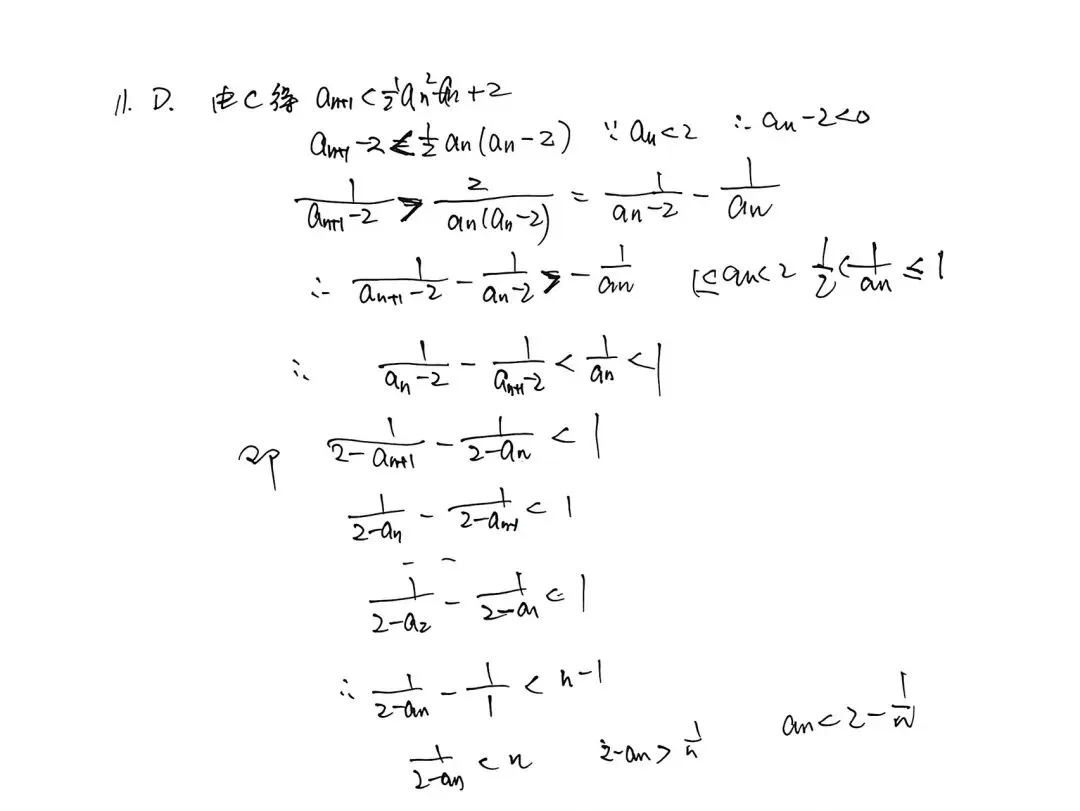 11. D. 由C得 aₙ₊₁ < ½aₙ² - aₙ + 2
aₙ₊₁ - 2 < ½aₙ(aₙ - 2) ∵ aₙ < 2 ∴ aₙ - 2 < 0
1/(aₙ₊₁ - 2) > 2/(aₙ(aₙ - 2)) = 1/(aₙ - 2) - 1/aₙ
∴ 1/(aₙ₊₁ - 2) - 1/(aₙ - 2) > - 1/aₙ 1 ≤ aₙ < 2 1/2 < 1/aₙ ≤ 1
∴ 1/(aₙ - 2) - 1/(aₙ₊₁ - 2) < 1/aₙ < 1
即 1/(2 - aₙ₊₁) - 1/(2 - aₙ) < 1
1/(2 - aₙ) - 1/(2 - aₙ₋₁) < 1
- -
1/(2 - a₂) - 1/(2 - a₁) < 1
∴ 1/(2 - aₙ) - 1/1 < n - 1
1/(2 - aₙ) < n 2 - aₙ > 1/n aₙ < 2 - 1/n